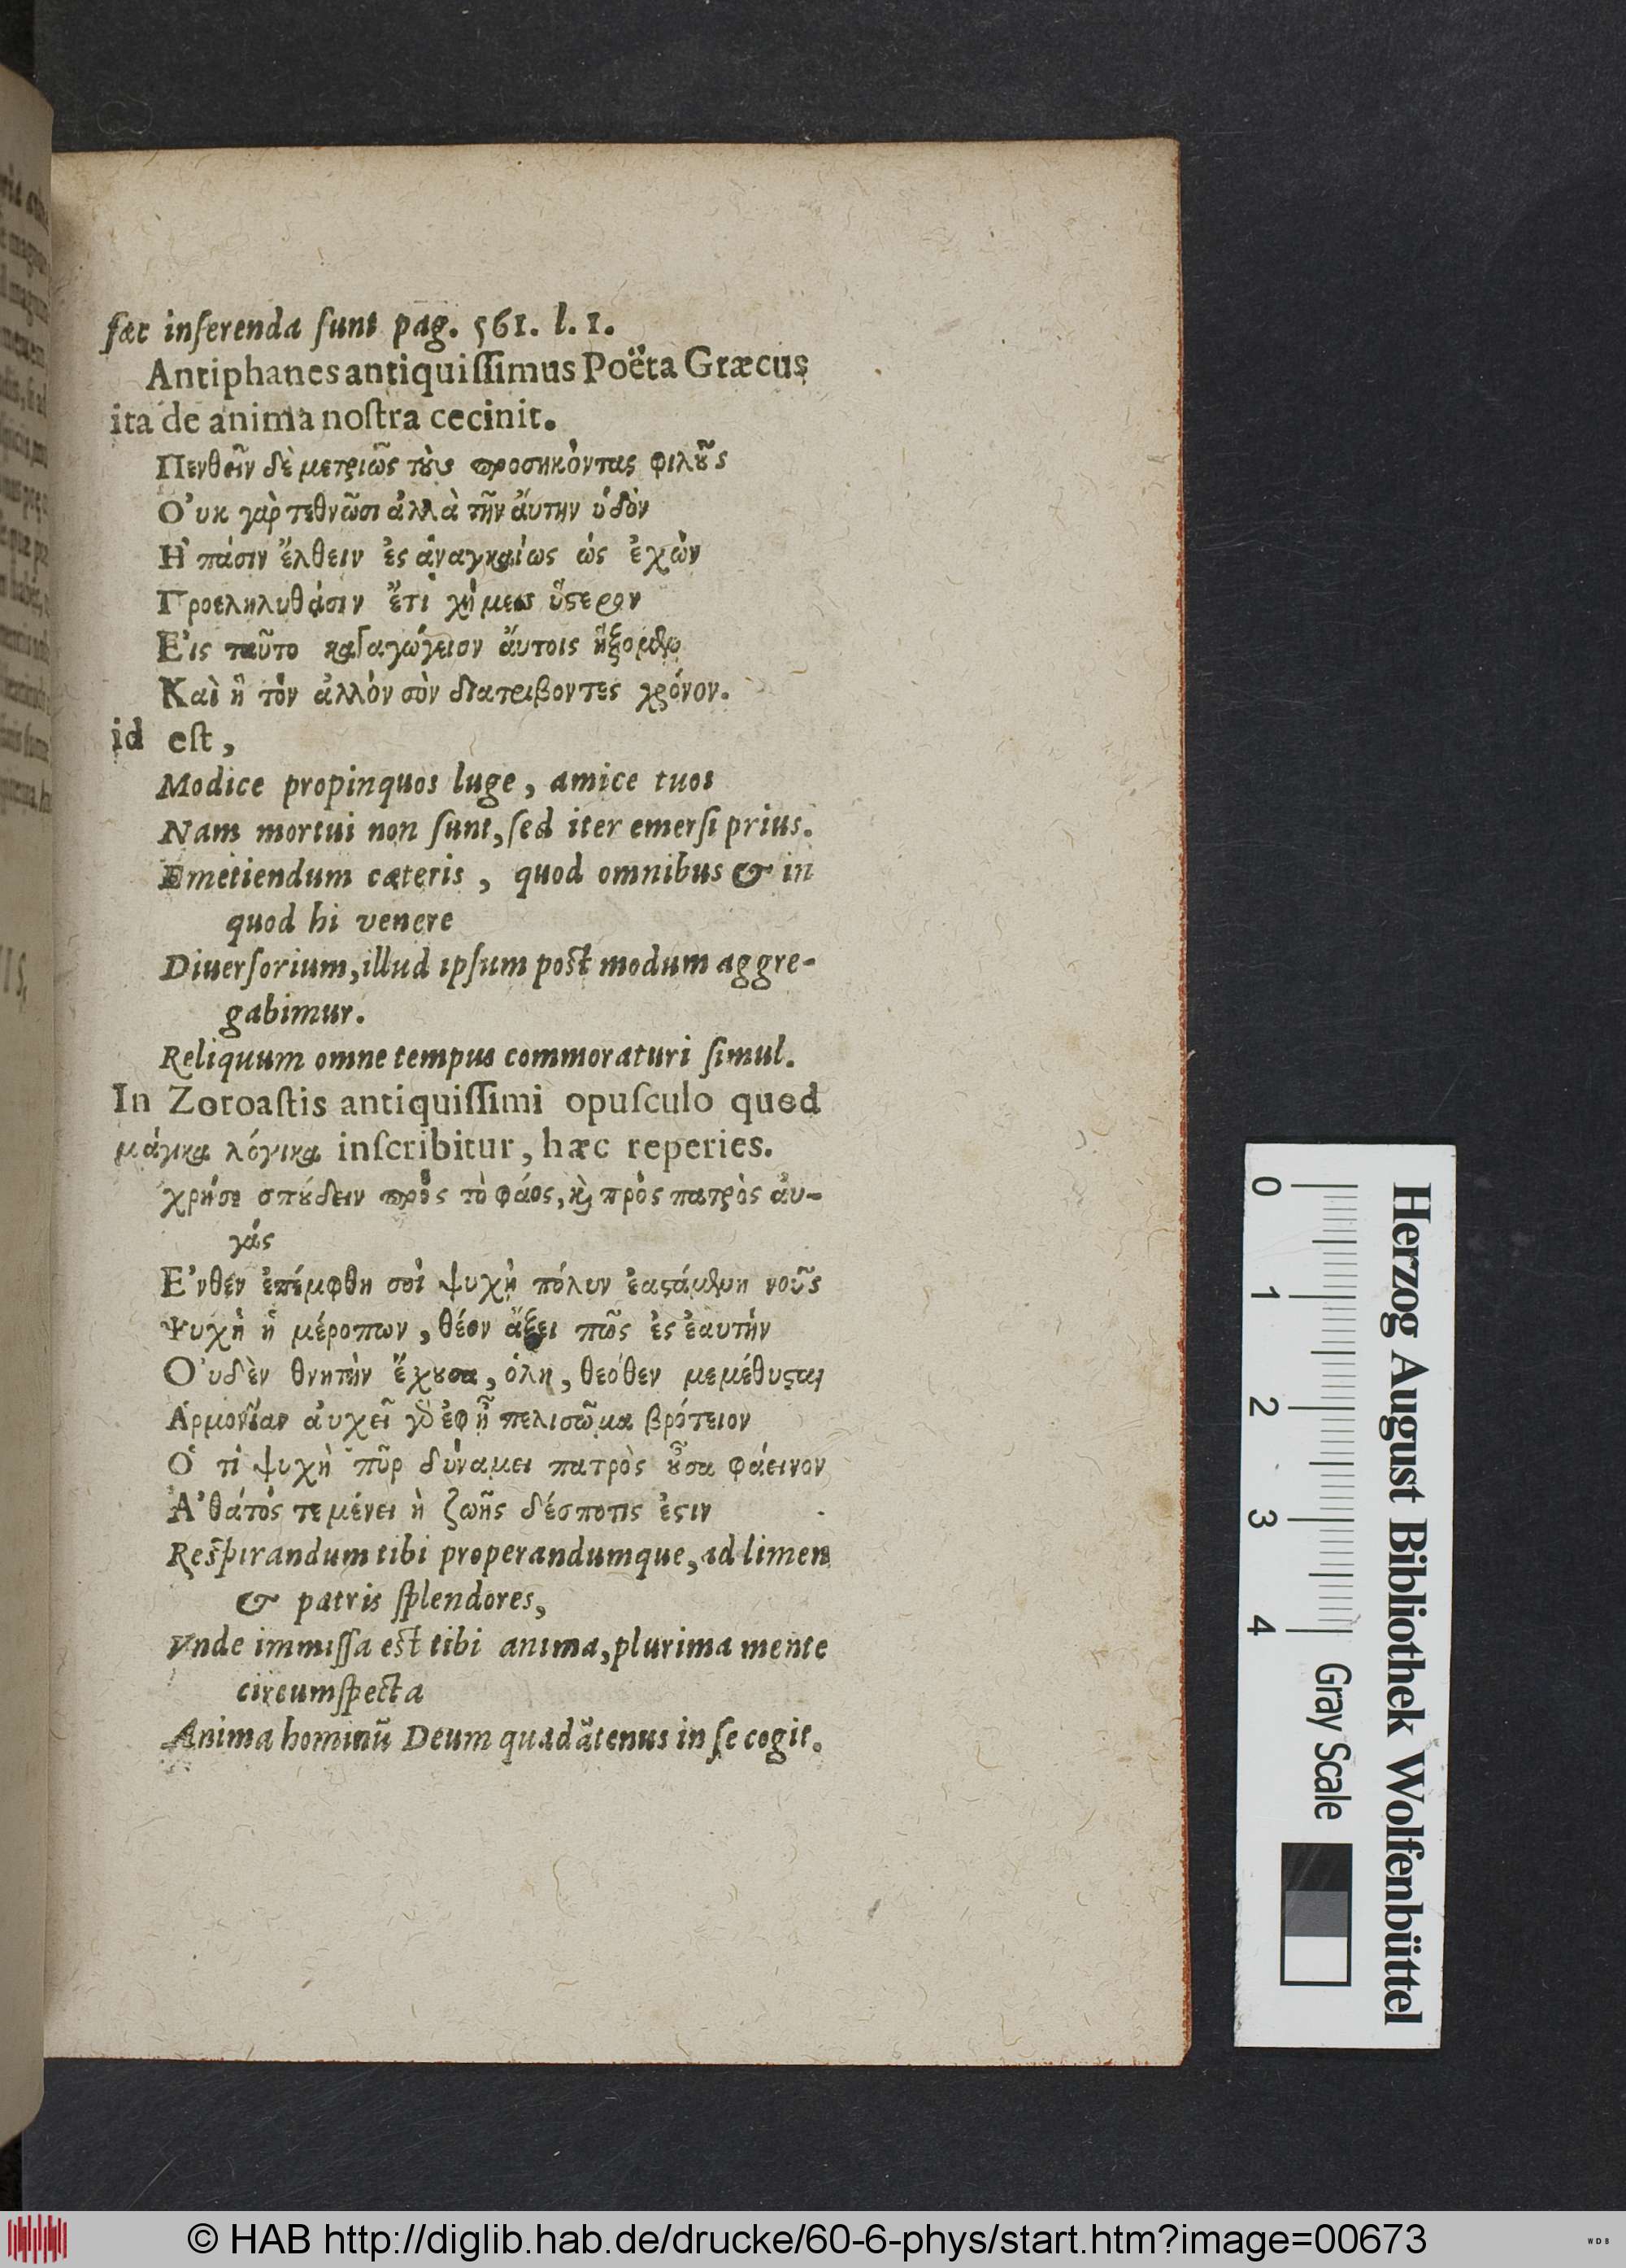 fæc inſerenda ſunt pag. 561. l. 1.
Antiphanes antiquiſſimus Poëta Græcus
ita de anima noſtra cecinit.
Πενθεῖν δὲ μετριῶς τὸυς προσηκόντας φιλοῦς
Ο’υκ γὰρ τεθνῶσι ἀλλὰ τῆν ἄυτην ὑδὸν
Η῾ πάσιν ἔλθειν ἐς ἀναγκαίως ὡς ἐχὼν
Προεληλυθάσιν ἔτι χἡμεις ὕστερον
Ε’ις ταῦτο καταγώγειον ἄυτοις ἥξομεν
Καὶ ἢ τὸν ἀλλὸν σὺν διατριβοντες χρόνον.
id eſt,
Modice propinquos luge, amice tuos
Nam mortui non ſunt, ſed iter emerſi prius.
Emetiendum cæteris, quod omnibus & in
quod hi venere
Diuerſorium, illud ipſum poſt modum aggre-
gabimur.
Reliquum omne tempus commoraturi ſimul.
In Zoroaſtis antiquiſſimi opuſculo quod
μάγικα λόγικα inſcribitur, hæc reperies.
χρήσε σπύδειν πρὸς τὸ φάος, καὶ πρὸς πατρὸς ἀυ-
γάς
Ε’νθεν ἐπέμφθη σοί ψυχὴ πόλυν ἑασάμενη νοῦς
Ψυχὴ ἡ μέροπων, θέον ἄξει πῶς ἐς ἑαυτήν
Ο’υδὲν θνητὴν ἔχουσα, ὁλη, θεόθεν μεμέθυσται
Ἁρμονίαν ἀυχεῖ γὰρ ἐφ ᾗ πελισῶμα βρότειον
Ὁ τί ψυχὴ πῦρ δύναμει πατρὸς οὖσα φάεινον
Α’θάτός τε μένει ἡ ζωῆς δέσποτις ἐςιν
Reſpirandum tibi properandumque, ad limen
& patris ſplendores,
Vnde immiſſa eſt tibi anima, plurima mente
circumſpecta
Anima hominū Deum quadātenus in ſe cogit.
0 1 2 3 4
Gray Scale
Herzog August Bibliothek Wolfenbüttel
© HAB http://diglib.hab.de/drucke/60-6-phys/start.htm?image=00673
WDB